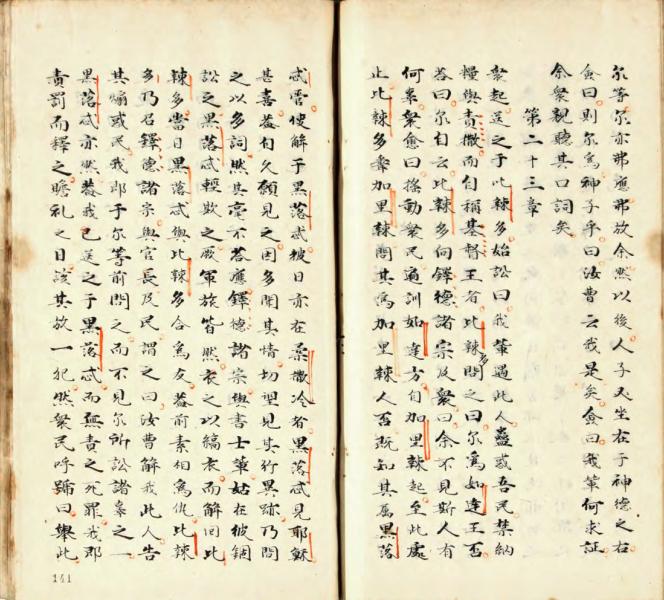 尔等尔亦弗應弗放余然以後人子必坐在于神德之右
僉曰則尔為神子乎曰汝曹云我是矣僉曰我輩何求証
余衆親聽其口詞矣
第二十三章
衆起送之于比辣多始訟曰我輩遇此人蠱惑吾民禁納
糧與責撒而自稱基督王者比辣多問之曰尔為如達王否
荅曰尔自云比辣多向鐸德諸宗及衆曰余不見斯人有
何辜衆愈曰搖動衆民遍訓如達方自加里辣起至此處
止比辣多聞加里辣問其為加里辣人否既知其属黑落
忒管使解于黑落忒彼日亦在柔撒冷者黑落忒見耶穌
甚喜葢自久願見之因多聞其情切望見其行異跡乃問
之以多詞然其毫不荅應鐸德諸宗與書士輩站在彼錮
訟之黑落忒輕欺之厥軍旅皆然衣之以縞衣而解回比
辣多當日黑落忒與比辣多合為友葢前素相為仇比辣
多乃召鐸德諸宗與官長及民謂之曰汝曹解我此人告
其煽惑民我即于尔等前問之而不見尔所訟諸辜之一
黑落忒亦然葢我已送之于黑落忒而無責之死罪我即
責罰而釋之瞻礼之日該其放一犯然衆民呼號曰舉此
141